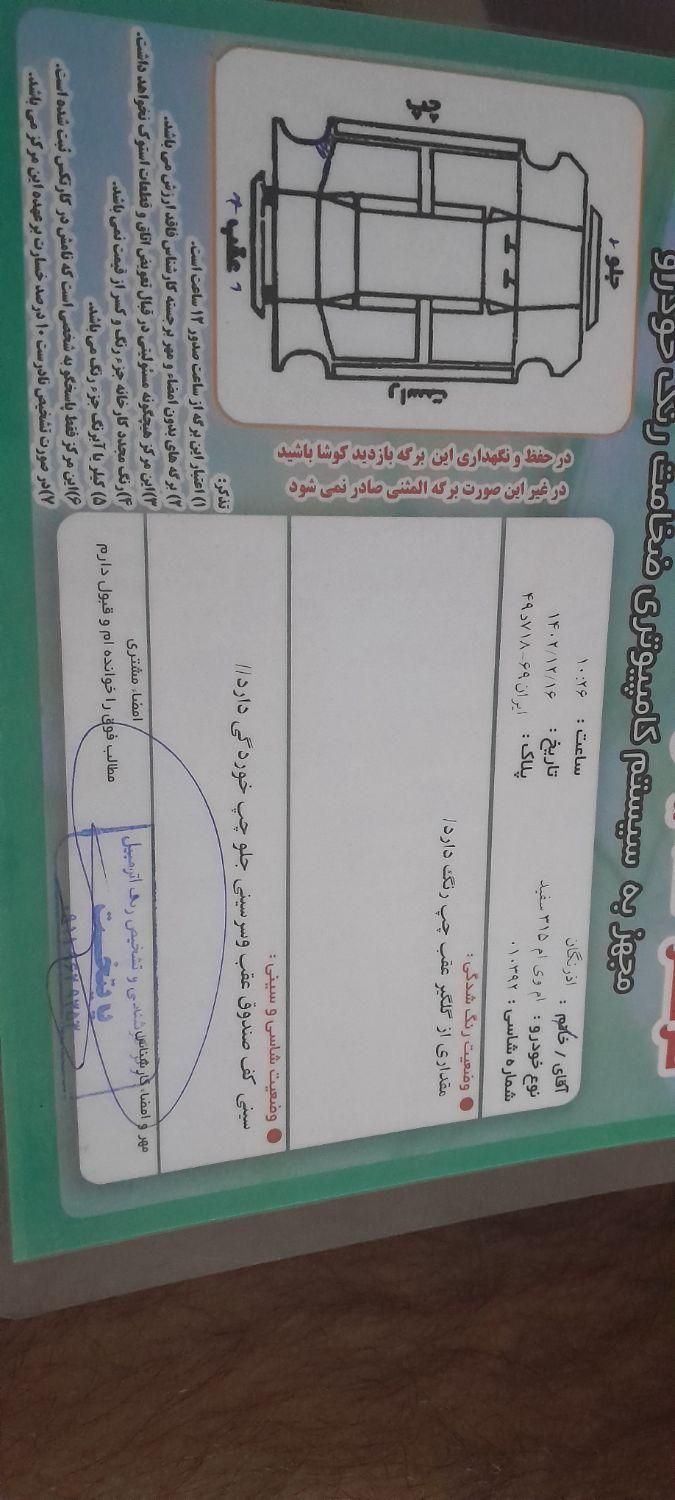 مجهز به سیستم کامپیوتری ضخامت رنگ خودرو
آقای / خانم : اذرنگان
ساعت : ۱۰:۲۶
نوع خودرو : ام وی ام ۳۱۵ سفید
تاریخ : ۱۴۰۲/۱۲/۱۶
شماره شاسی : ۰۱۰۳۹۲
پلاک : ایران۶۹-۷۱۸د۴۹
وضعیت رنگ شدگی :
مقداری از گلگیر عقب چپ رنگ دارد/
وضعیت شاسی و سینی :
سینی کف صندوق عقب وسرسینی جلو چپ خوردگی دارد//
مهر و امضاء کارشناس
امضاء مشتری
مطالب فوق را خوانده ام و قبول دارم
پایتخت
جلو
چپ
راست
عقب
در حفظ و نگهداری این برگه بازدید کوشا باشید
در غیر این صورت برگه المثنی صادر نمی شود
تذکر:
۱) اعتبار این برگه از ساعت صدور ۱۲ ساعت است.
۲) برگه های بدون امضاء و مهر برجسته کارشناس فاقد ارزش می باشد.
۳)این مرکز هیچگونه مسئولیتی در قبال تعویض اتاق و قطعات استوک نخواهد داشت.
۴)رنگ مجدد کارخانه جزء رنگ و کسر از قیمت نمی باشد.
۵) کیلر یا آبرنگ جزء رنگ می باشد.
۶)این مرکز فقط پاسخگو به شخصی است که نامش در کارتکس ثبت شده است.
۷)در صورت تشخیص نادرست ۱۰ درصد خسارت برعهده این مرکز می باشد.